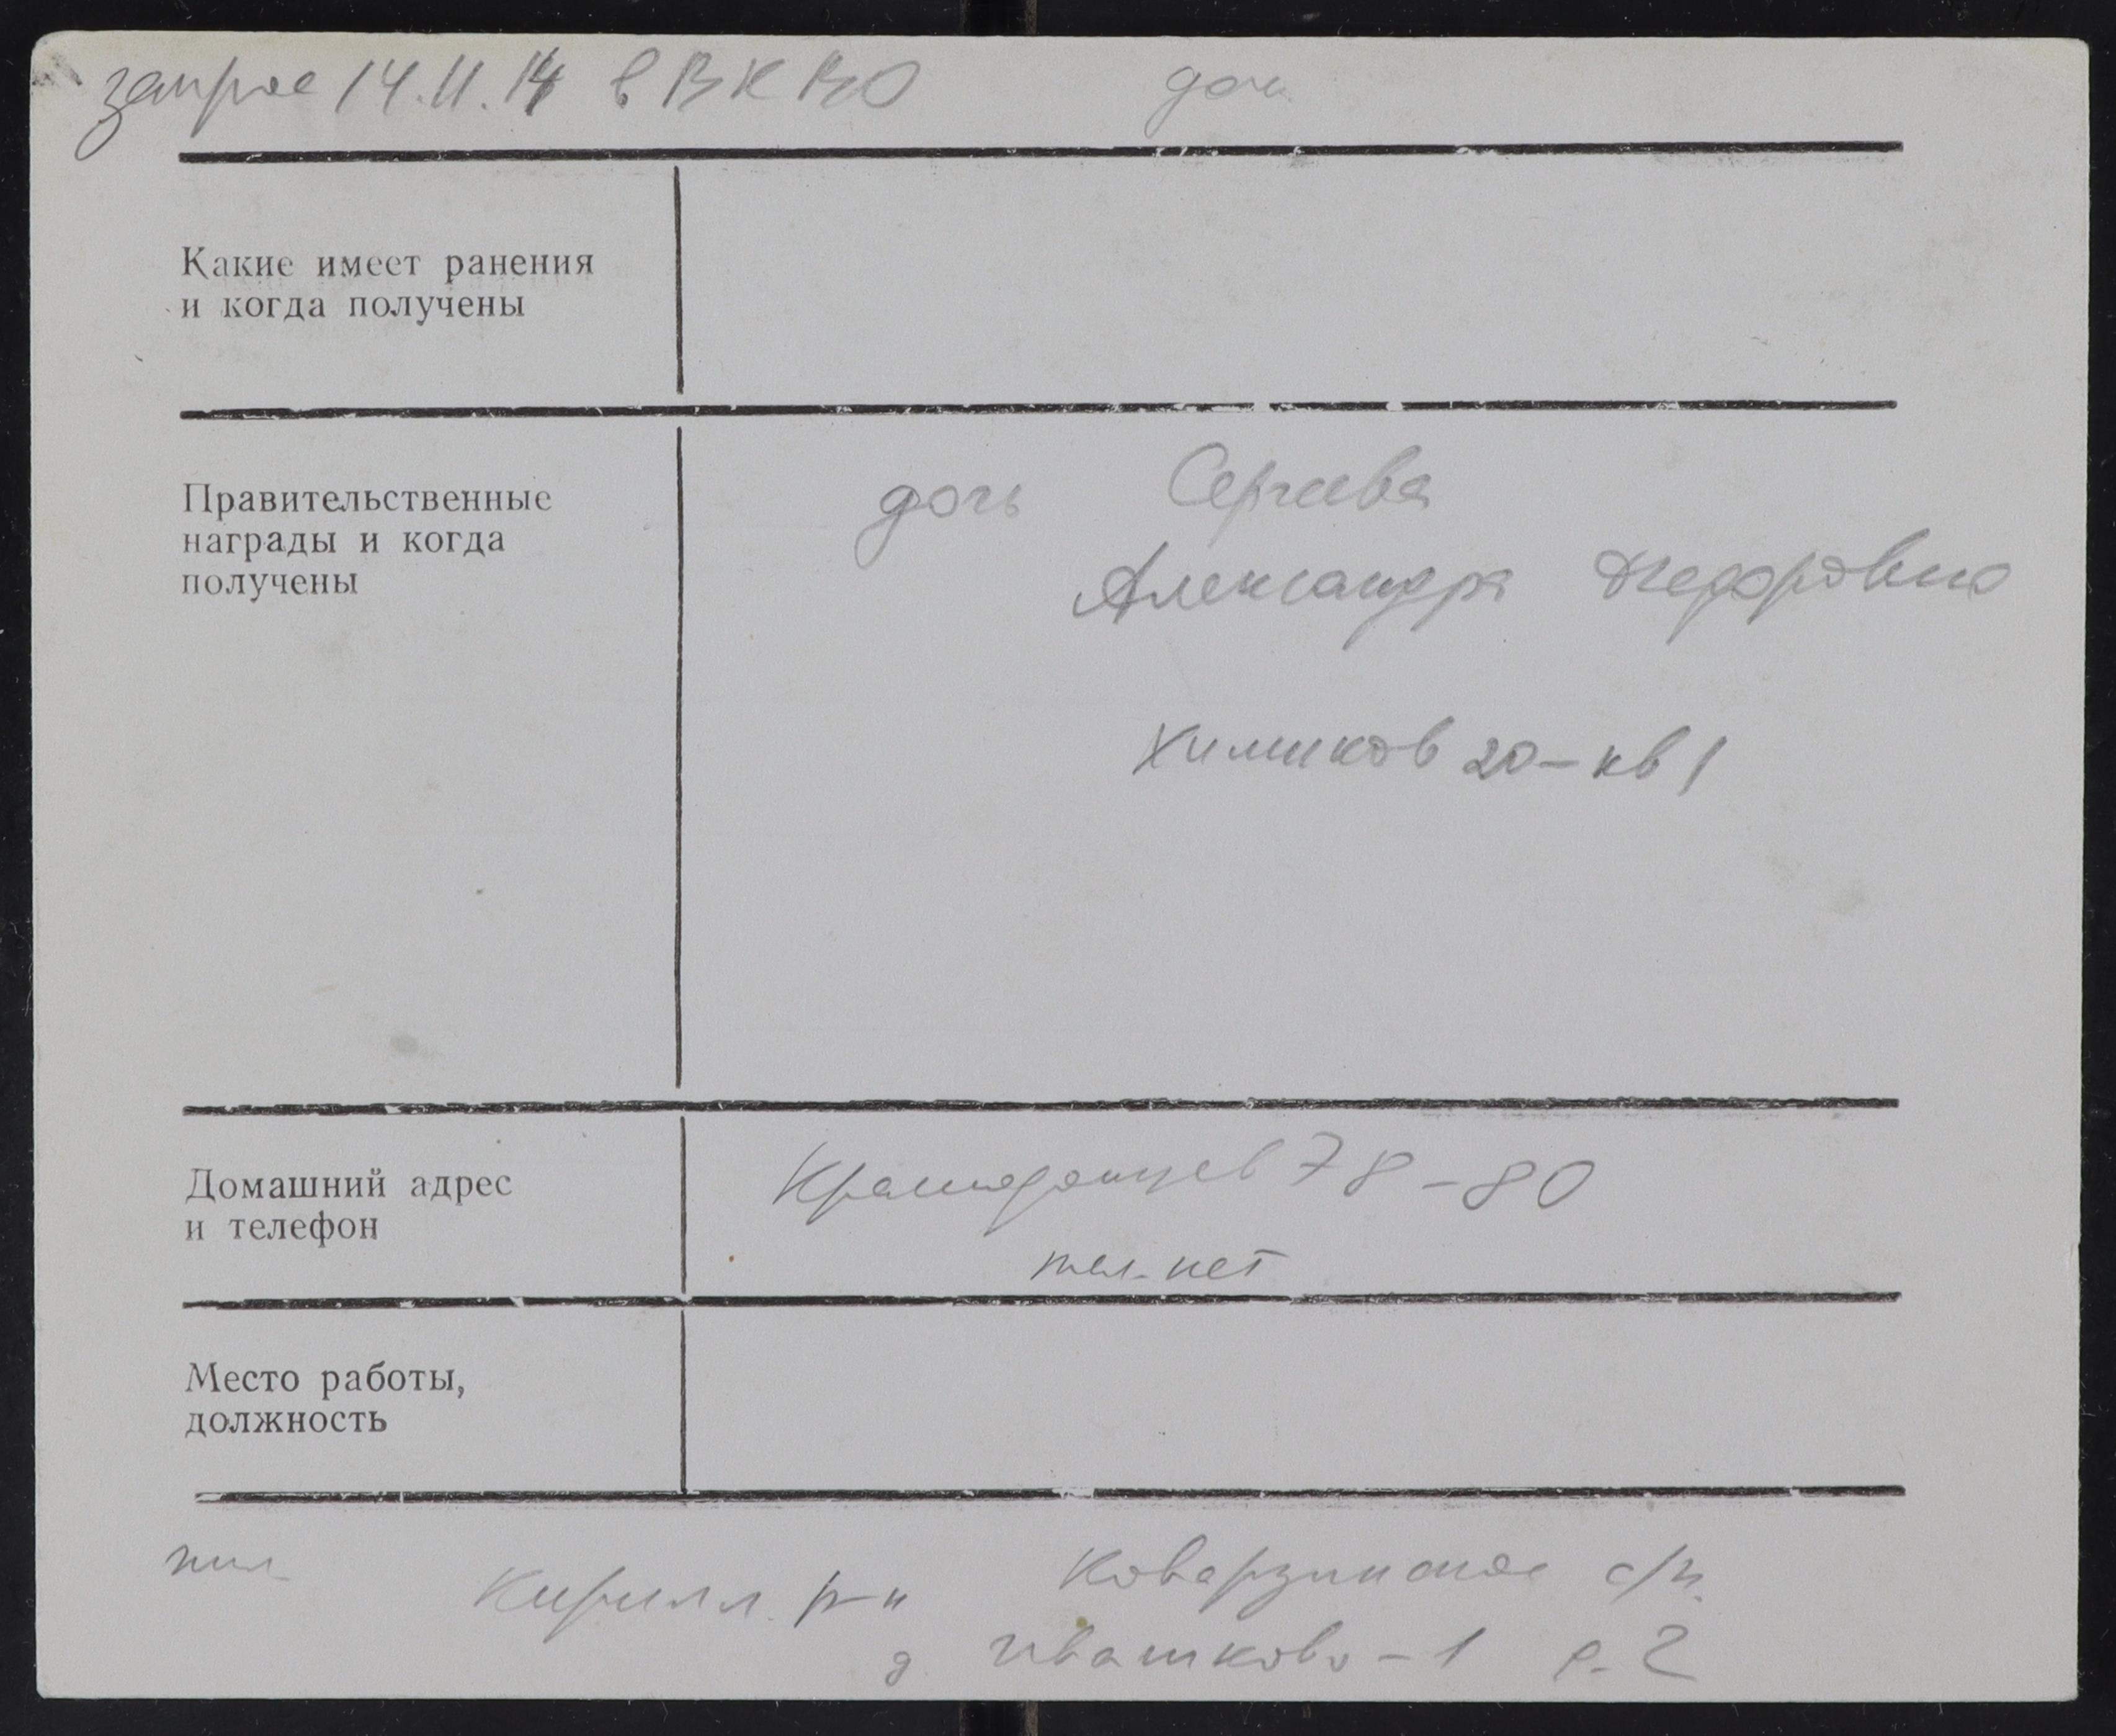 запрос 14.11.14 в ВК ВО дочь
Какие имеет ранения
и когда получены
Правительственные
награды и когда
получены
дочь Сергеева
Александра Федоровна
Химиков 20-кв 1
Домашний адрес
и телефон
Краснодонцев 78-80
тел. нет
Место работы,
должность
Кирилл. р-н Коварзинское с/п.
д Ивашково-1 д-2